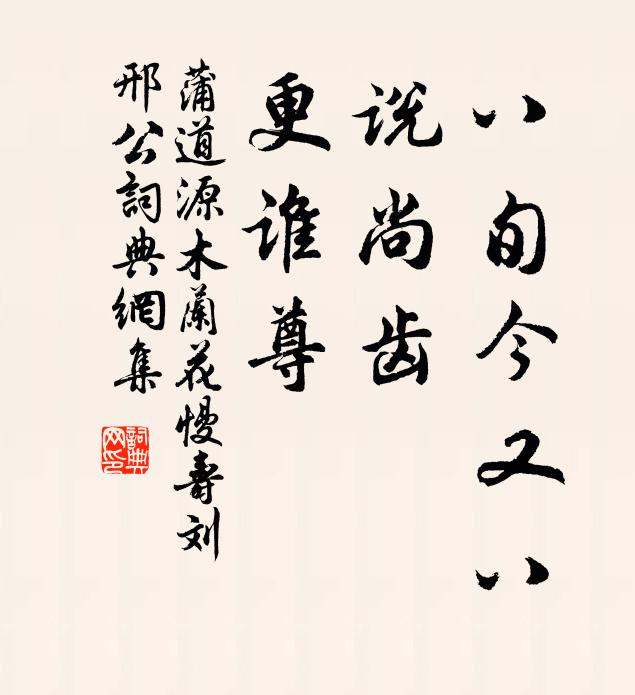 八旬今又八
说尚齿
更谁尊
蒲道源木蘭花慢壽刘
邢公詞典網集
詞典网印